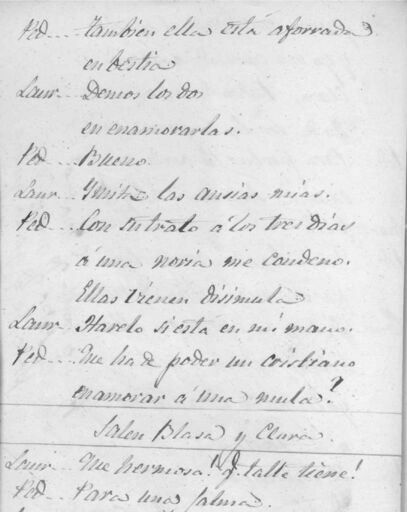 Ped... tambien ella está aforrada
en bestia
Laur... Demos los dos
en enamorarlas.
Ped... Bueno.
Laur... Ymita las ansias mias.
Ped... Con su trato á los tres dias
á una noria me condeno.
Ellas tienen disimula
Laur... Harelo si esta en mi mano.
Ped... Que ha de poder un cristiano
enamorar á una mula?
Salen Blasa y Clara.
Laur... Que hermosa! q. talle tiene!
Ped... Para una jalma.